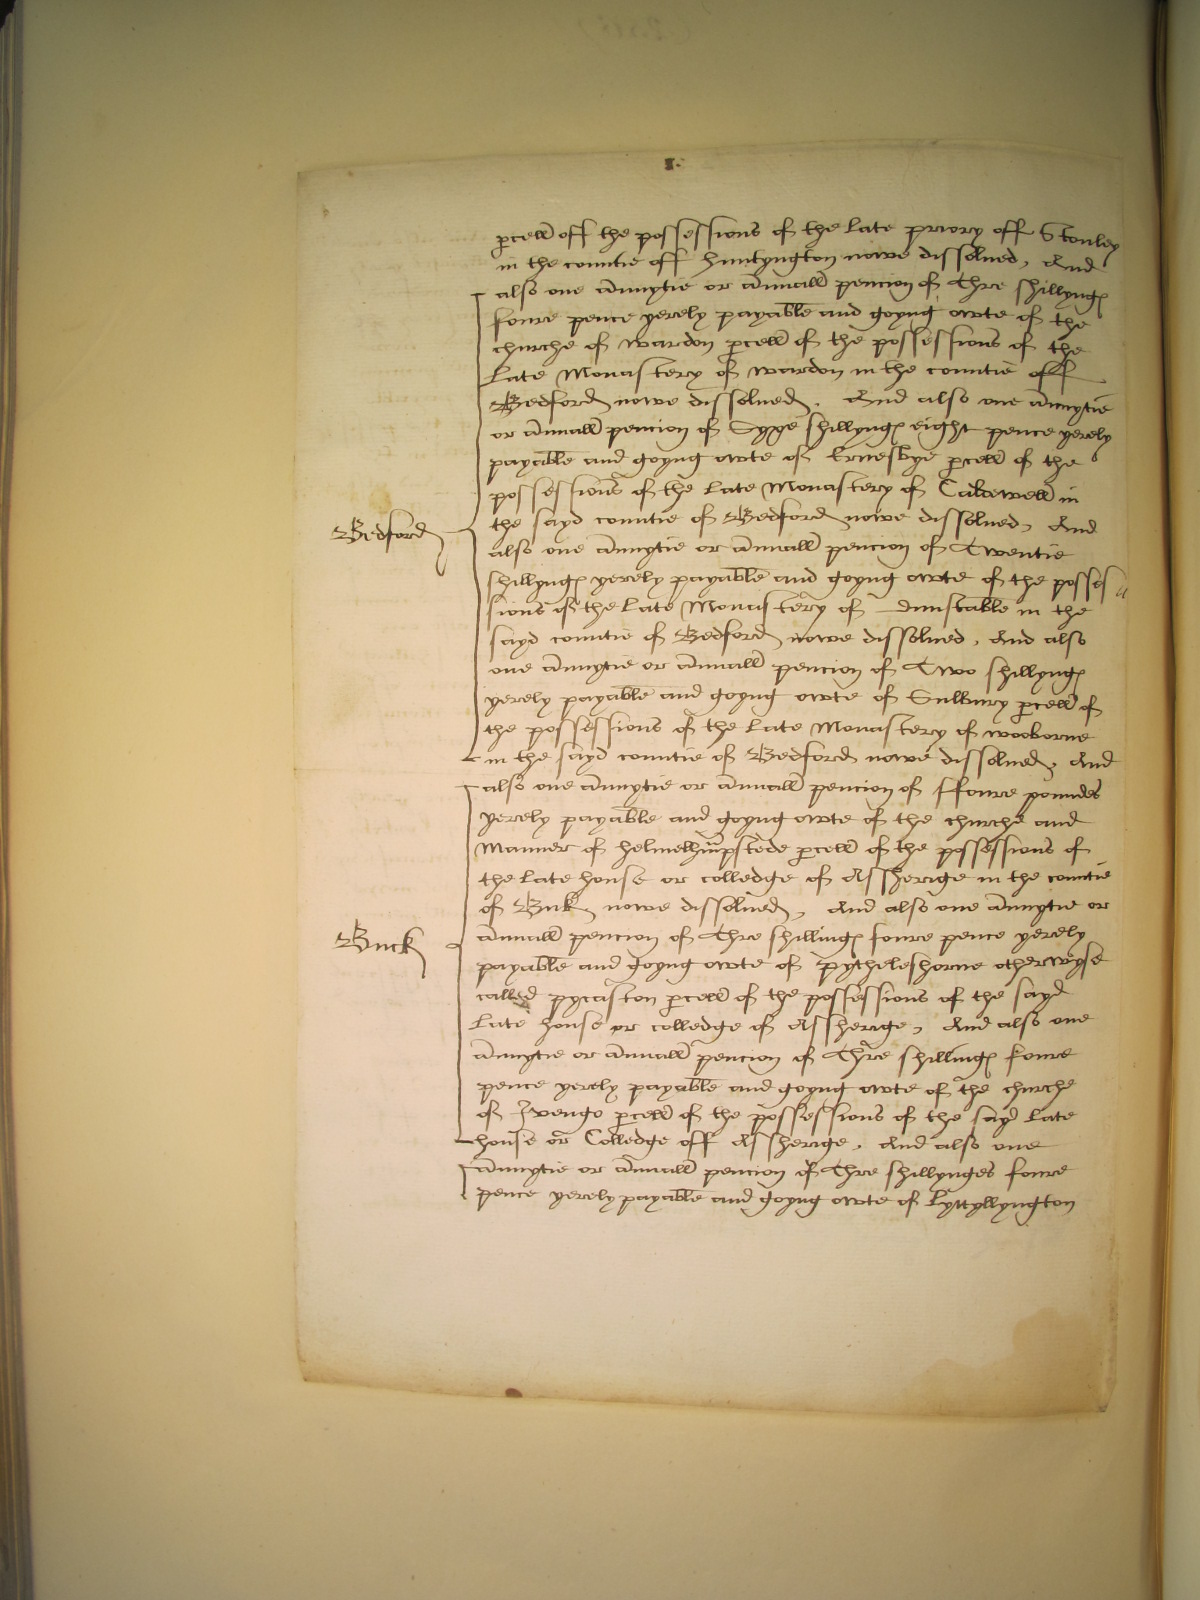 pcell off the possessions of the late priory off Stonley
in the countie off huntyngton nowe dissolued, And
also one annuytie or annuall pencion of Thre shillyngs
foure pence yerely payable and goyng owte of the
churche of wardon pcell of the possessions of the
late Monastery of wardon in the countie off
Bedford nowe dissolued. And also one annuytie
or annuall pencion of Syxe shillyngs eight pence yerely
payable and goyng owte of Ernesbye pcell of the
possessions of the late Monastery of Caldewell in
Bedford
the sayd countie of Bedford nowe dissolued, And
also one annuytie or annuall pencion of Twentie
shillyngs yerely payable and goyng owte of the posses
sions of the late Monastery of Dunstable in the
sayd countie of Bedford nowe dissolued, And also
one annuytie or annuall pencion of Two shillyngs
yerely payable and goyng owte of Sulbury pcell of
the possessions of the late Monastery of wooborne
in the sayd countie of Bedford nowe dissolued, And
also one annuytie or annuall pencion of ffoure poundes
yerely payable and goyng owte of the churche and
Manner of helmelhmpstede pcell of the possessions of
the late house or colledge of Assherige in the countie
of Buk nowe dissolued, And also one annuytie or
Buck
annuall pencion of Thre shillings foure pence yerely
payable and goyng owte of pytheleshorne otherwyse
called pycaston pcell of the possessions of the sayd
late house or colledge of Assherige, And also one
annuytie or annuall pencion of Thre shillings foure
pence yerely payable and goyng owte of the churche
of Ivengo pcell of the possessions of the sayd late
house or Colledge off Assherige, And also one
annuytie or annuall pencion of Thre shillynges foure
pence yerely payable and goyng owte of lyttyllyngton